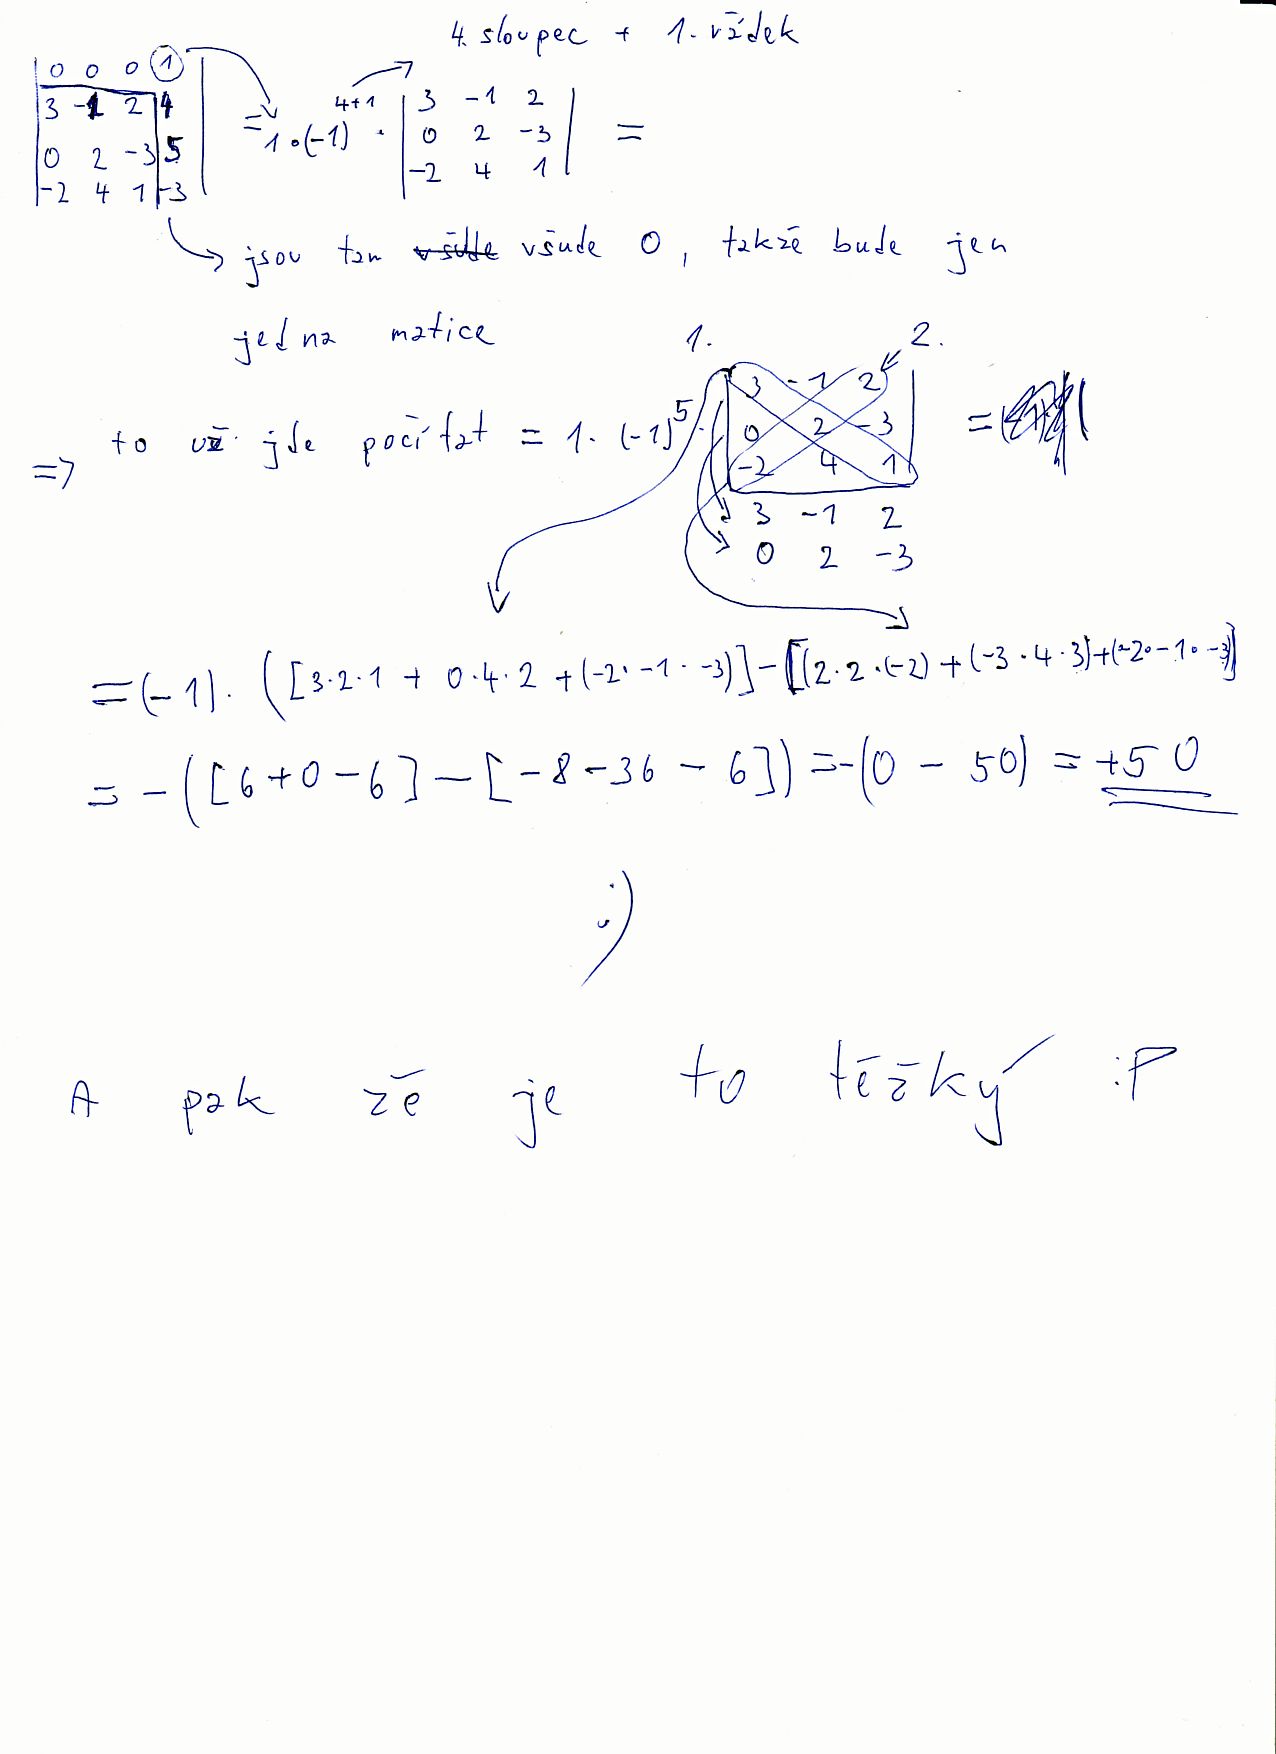 4. sloupec + 1. řádek
| 0 0 0 1 |
| 3 -1 2 4 |
| 0 2 -3 5 |
| -2 4 1 -3 |
= 1 • (-1)^4+1 · | 3 -1 2 |
| 0 2 -3 | =
| -2 4 1 |
jsou tam všude 0, takže bude jen
jedna matice
1. 2.
=> to už jde počítat = 1. (-1)^5 · | 3 -1 2 |
| 0 2 -3 | =
| -2 4 1 |
3 -1 2
0 2 -3
= (-1). ([3·2·1 + 0·4·2 + (-2· -1 · -3)] - [(2·2·(-2) + (-3·4·3) + (-2· -1 · -3)]
= - ([6+0-6] - [-8-36-6]) = -(0 - 50) = +50
;)
A pak že je to těžký :P